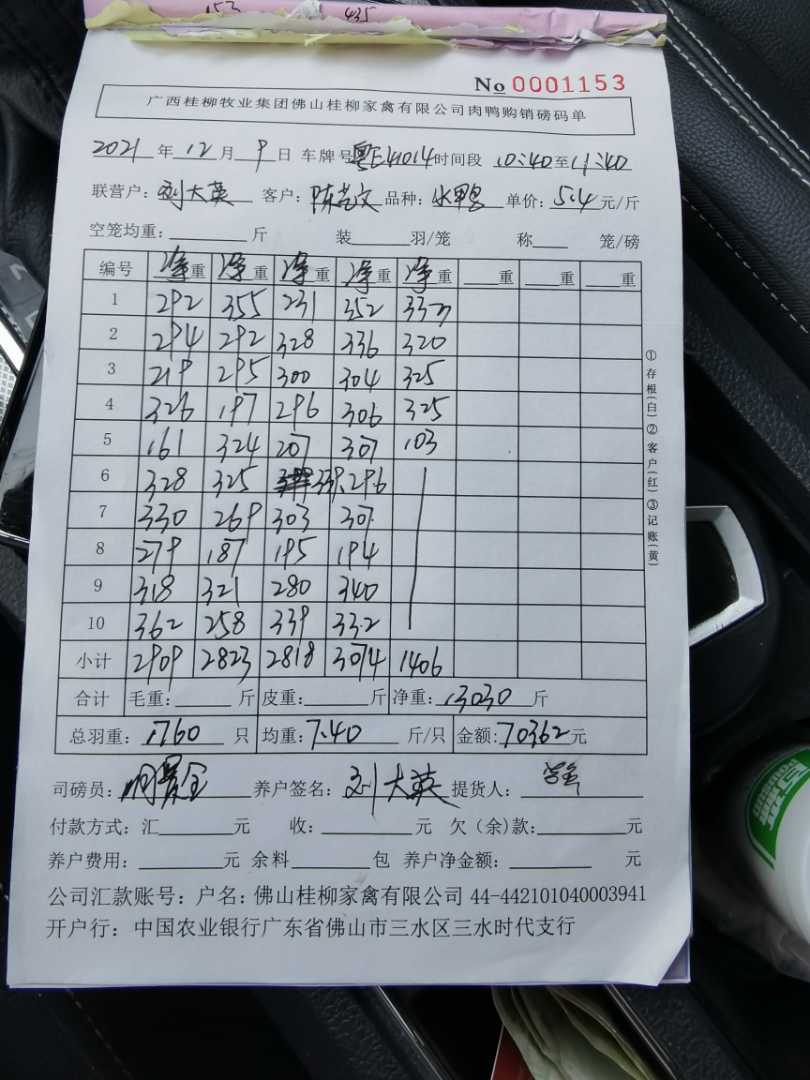 153 435
No 0001153
广西桂柳牧业集团佛山桂柳家禽有限公司肉鸭购销磅码单
2021 年 12 月 9 日 车牌号 粤E41014 时间段 10:40 至 11:40
联营户: 刘大英 客户: 陈艺文 品种: 水鸭 单价: 5.4 元/斤
空笼均重: 斤 装 羽/笼 称 笼/磅
编号 净重 净重 净重 净重 净重 重 重 重
1 292 355 231 352 337
2 294 292 328 336 320
3 219 295 300 304 325
4 326 197 296 306 325
5 161 324 207 307 103
6 328 325 339. 296
7 330 269 303 307
8 279 187 195 194
9 318 321 280 340
10 362 258 339 332
小计 2909 2823 2818 3074 1406
合计 毛重: 斤 皮重: 斤 净重: 13030 斤
总羽重: 1760 只 均重: 7.40 斤/只 金额: 70362 元
司磅员: 养户签名: 刘大英 提货人:
付款方式: 汇 元 收: 元 欠(余)款: 元
养户费用: 元 余料 包 养户净金额: 元
公司汇款账号: 户名: 佛山桂柳家禽有限公司 44-442101040003941
开户行: 中国农业银行广东省佛山市三水区三水时代支行
①存根(白)②客户(红)③记账(黄)